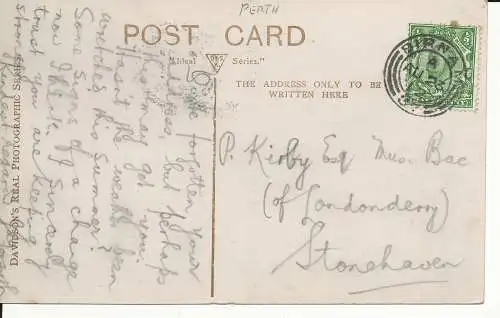 PERTH
POST CARD
"Ideal Series."
THE ADDRESS ONLY TO BE
WRITTEN HERE
BIRNAM
DAVIDSON'S REAL PHOTOGRAPHIC SERIES
forgotten your
address, but perhaps
this may get you.
Hasn't the weather been
wretched this Summer?
Some signs of a change
now I think. I sincerely
trust you are keeping
strong
P. Kirby Esq Mus. Bac
(of Londonderry)
Stonehaven